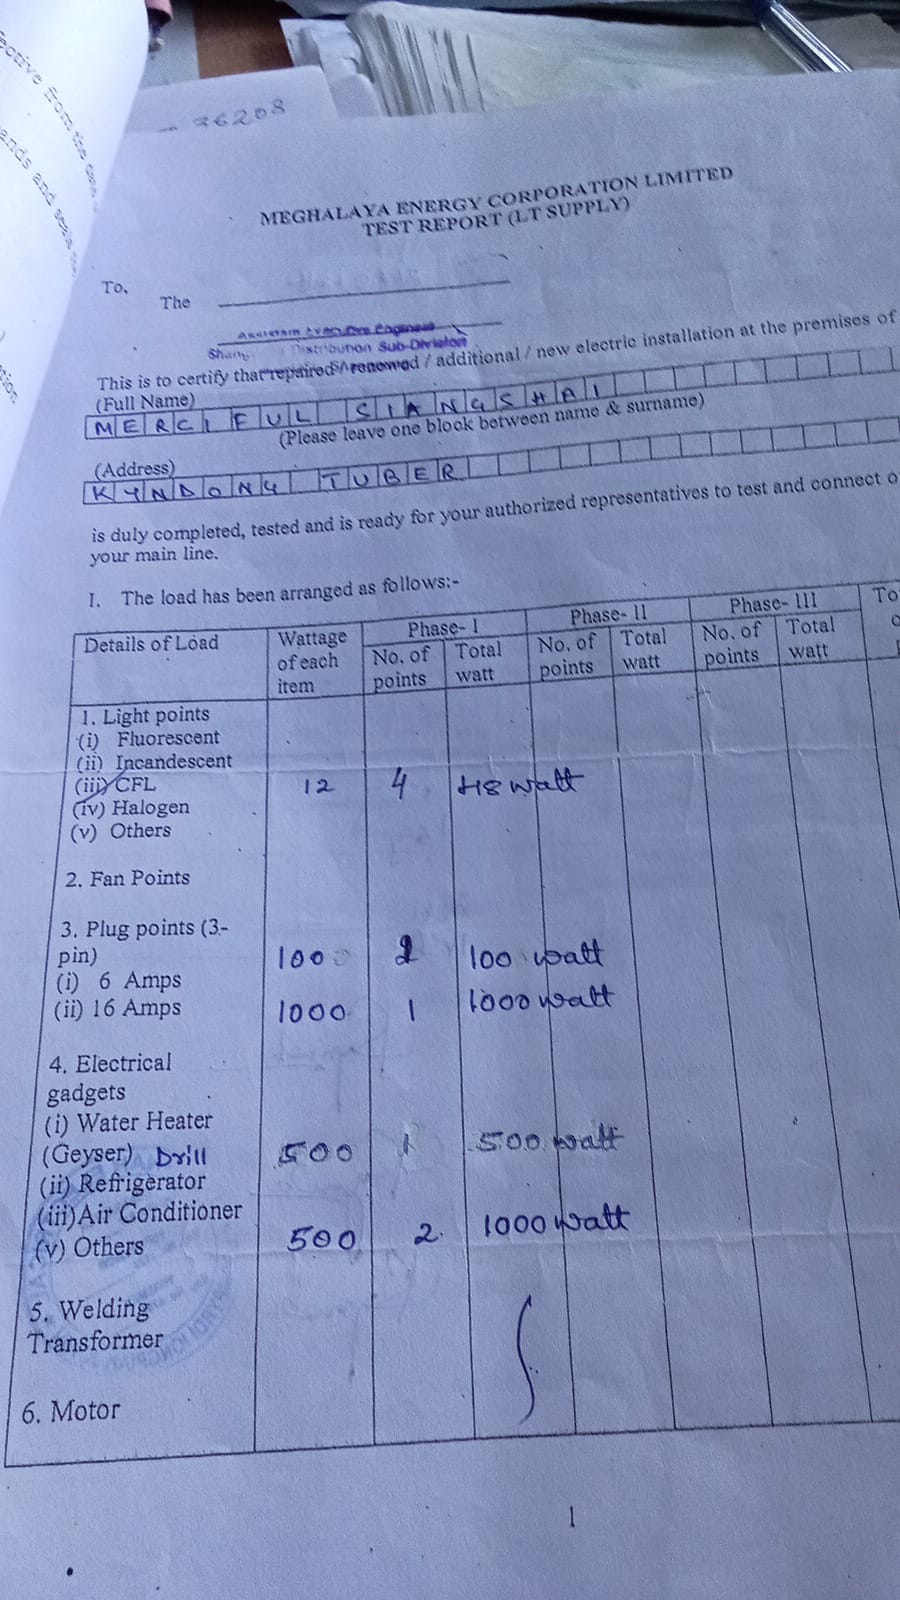 ective from the date
ands and seals the
tion
36208
MEGHALAYA ENERGY CORPORATION LIMITED
TEST REPORT (LT SUPPLY)
To,
The
Assistant Executive Engineer
Distribution Sub-Division
This is to certify that repaired / renewed / additional / new electric installation at the premises of
(Full Name)
MERCIFUL SIANGSHAI
(Please leave one block between name & surname)
(Address)
KYNDONG TUBER
is duly completed, tested and is ready for your authorized representatives to test and connect o
your main line.
I. The load has been arranged as follows:-
Details of Load Wattage of each item Phase- I Phase- II Phase- III To
No. of points Total watt No. of points Total watt No. of points Total watt
1. Light points
(i) Fluorescent
(ii) Incandescent
(iii) CFL 12 4 48 watt
(iv) Halogen
(v) Others
2. Fan Points
3. Plug points (3-
pin) 100 100 watt
(i) 6 Amps
(ii) 16 Amps 1000 1 1000 watt
4. Electrical
gadgets
(i) Water Heater
(Geyser) Drill 500 1 500 watt
(ii) Refrigerator
(iii) Air Conditioner
(v) Others 500 2. 1000 watt
5. Welding
Transformer
6. Motor
1